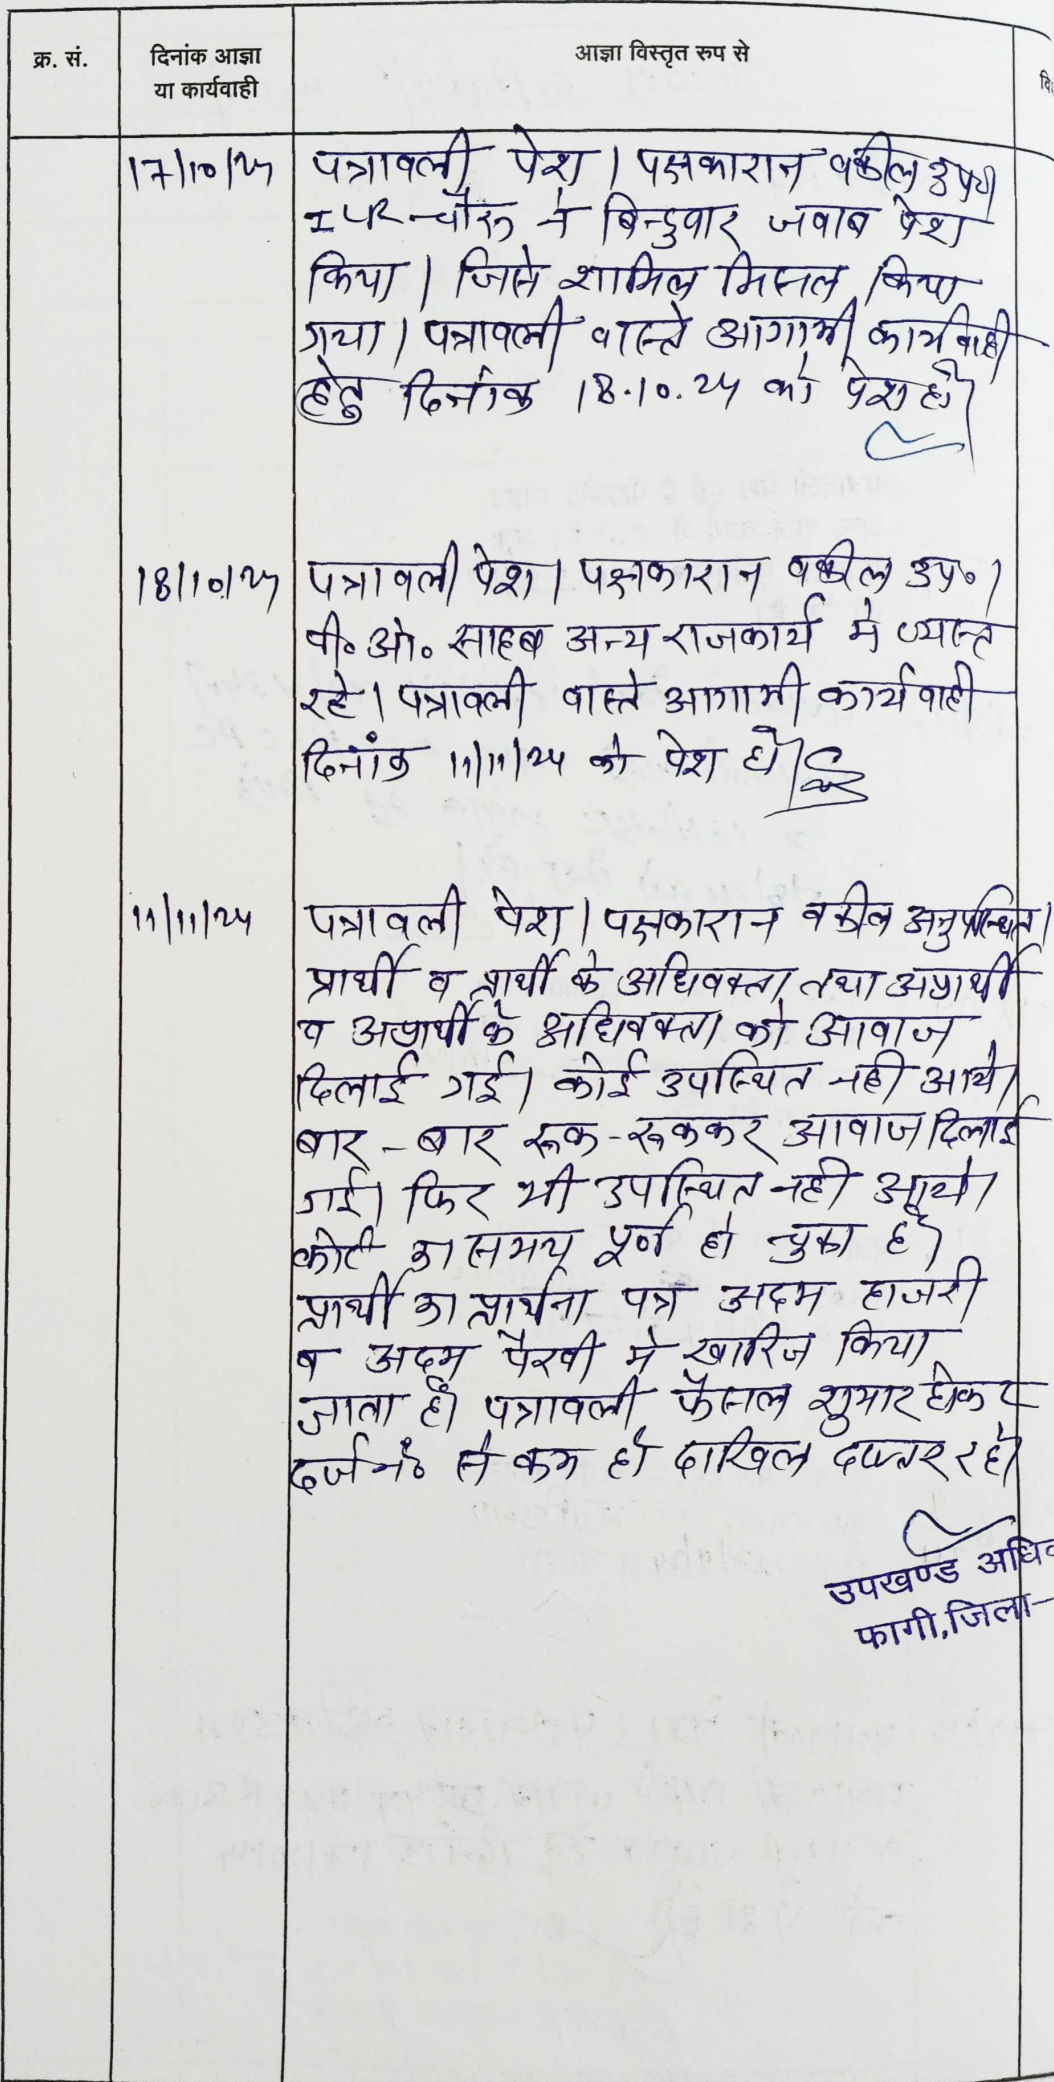 क्र. सं.
दिनांक आज्ञा
या कार्यवाही
आज्ञा विस्तृत रुप से
17/10/24
पत्रावली पेश। पक्षकारान वकील उप०।
ILR चौरू ने बिन्दुवार जवाब पेश
किया। जिसे शामिल मिसल किया
गया। पत्रावली वास्ते आगामी कार्यवाही
हेतु दिनांक 18.10.24 को पेश हो।
18/10/24
पत्रावली पेश। पक्षकारान वकील उप०।
पी० ओ० साहब अन्य राजकार्य मे व्यस्त
रहे। पत्रावली वास्ते आगामी कार्यवाही
दिनांक 11/11/24 को पेश हो।
11/11/24
पत्रावली पेश। पक्षकारान वकील अनुपस्थित।
प्रार्थी व प्रार्थी के अधिवक्ता तथा अप्रार्थी
व अप्रार्थी के अधिवक्ता को आवाज
दिलाई गई। कोई उपस्थित नही आये।
बार-बार रूक-रूककर आवाज दिलाई
गई। फिर भी उपस्थित नही आये।
कोर्ट का समय पूर्ण हो चुका है।
प्रार्थी का प्रार्थना पत्र अदम हाजरी
व अदम पैरवी मे खारिज किया
जाता है। पत्रावली फैसल शुमार होकर
दर्ज नं० से कम हो दाखिल दफ्तर रहे।
उपखण्ड अधि
फागी, जिला-